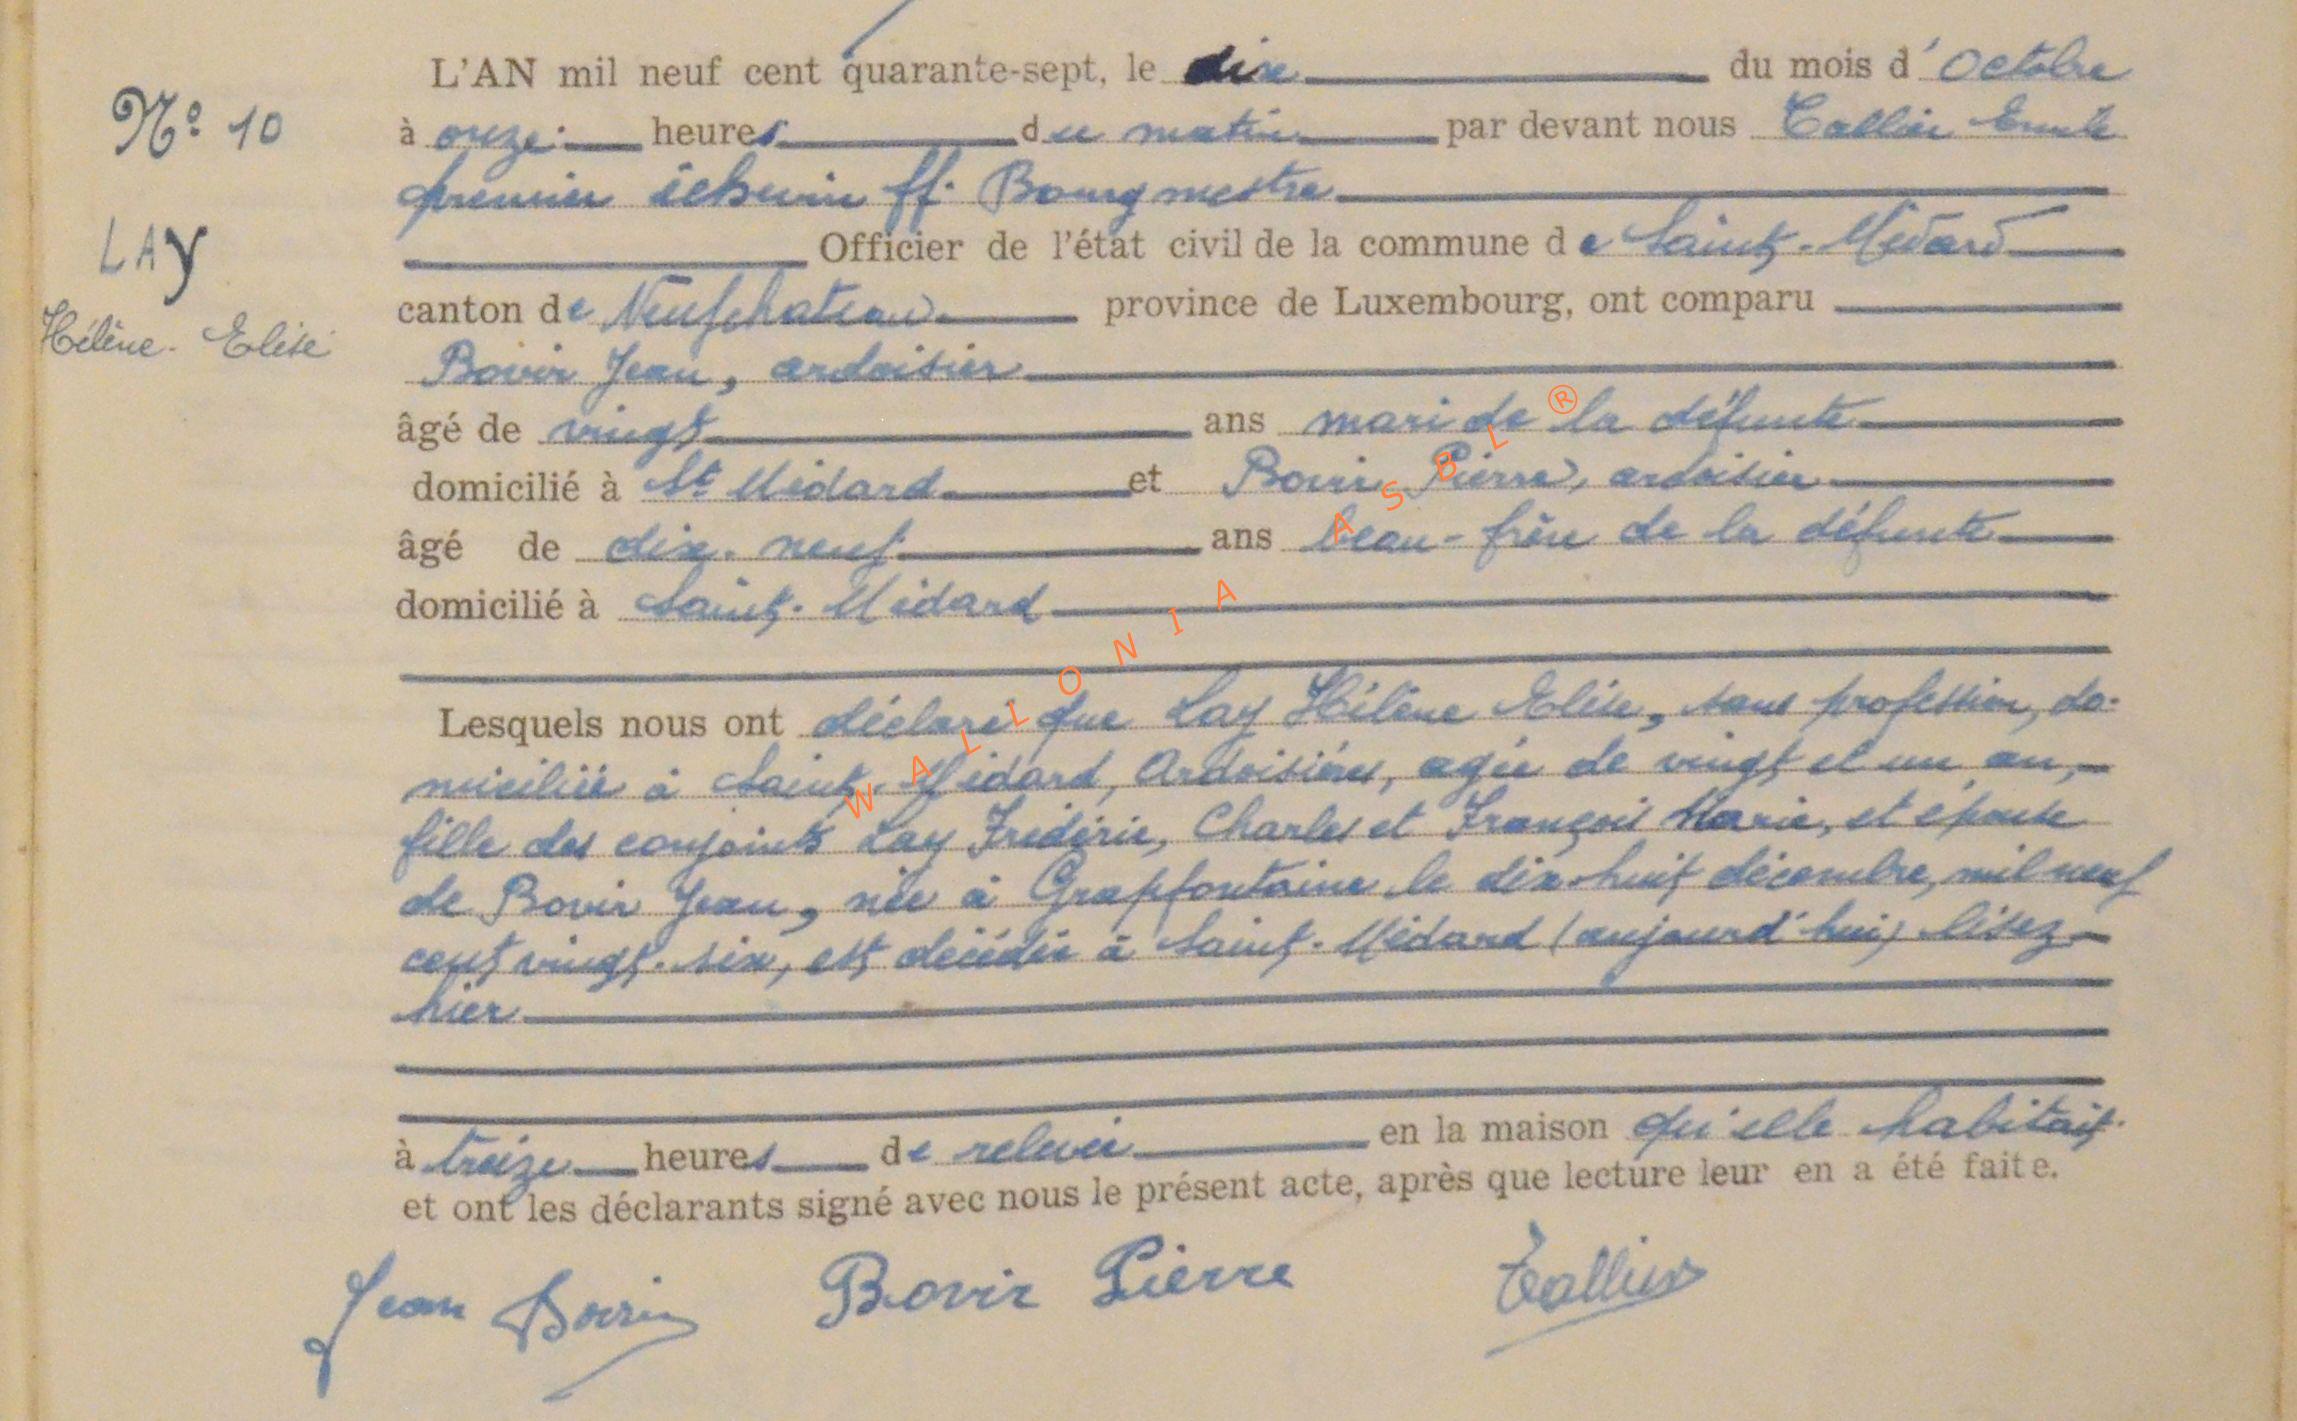 L'AN mil neuf cent quarante-sept, le dix du mois d'Octobre
Nº 10
à onze heures du matin par devant nous Tallier Emile
premier échevin ff. Bourgmestre
LAY
Officier de l'état civil de la commune de Saint-Médard
canton de Neufchateau province de Luxembourg, ont comparu
Hélène-Elise
Bovir Jean, ardoisier
âgé de vingt ans mari de la défunte
domicilié à St Médard et Bovir Pierre, ardoisier
âgé de dix-neuf ans beau-frère de la défunte
domicilié à Saint-Médard
Lesquels nous ont déclaré que Lay Hélène Elise, sans profession, do-
miciliée à Saint-Médard, Ardoisières, agée de vingt et un an,
fille des conjoints Lay Frédéric, Charles et François Marie, et épouse
de Bovir Jean, née à Grapfontaine le dix-huit décembre, mil neuf
cent vingt-six, est décédée à Saint-Médard (aujourd'hui) lisez
hier
à treize heures de relevée en la maison qu'elle habitait
et ont les déclarants signé avec nous le présent acte, après que lecture leur en a été faite.
Jean Bovir Bovir Pierre
WALLONIA ASBL ®